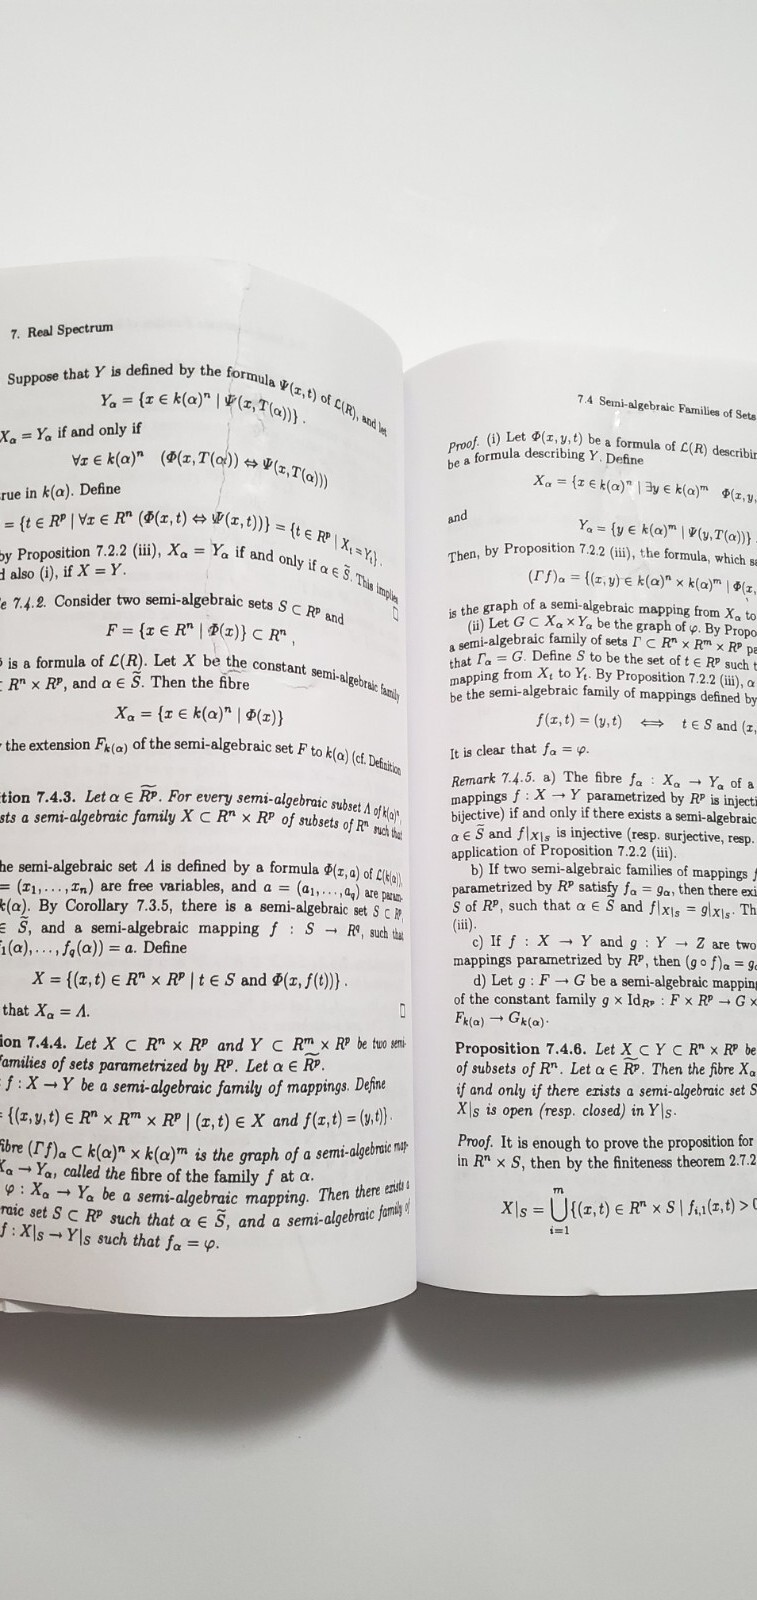 7. Real Spectrum
Suppose that Y is defined by the formula Ψ(x, t) of ℒ(R), and let
Yα = {x ∈ k(α)ⁿ | Ψ(x, T(α))} .
Xα = Yα if and only if
∀x ∈ k(α)ⁿ (Φ(x, T(α)) ⇔ Ψ(x, T(α)))
rue in k(α). Define
= {t ∈ Rᵖ | ∀x ∈ Rⁿ (Φ(x, t) ⇔ Ψ(x, t))} = {t ∈ Rᵖ | Xt = Yt} .
by Proposition 7.2.2 (iii), Xα = Yα if and only if α ∈ S̃. This implies
d also (i), if X = Y. □
e 7.4.2. Consider two semi-algebraic sets S ⊂ Rᵖ and
F = {x ∈ Rⁿ | Φ(x)} ⊂ Rⁿ ,
is a formula of ℒ(R). Let X be the constant semi-algebraic family
Rⁿ × Rᵖ, and α ∈ S̃. Then the fibre
Xα = {x ∈ k(α)ⁿ | Φ(x)}
the extension Fk(α) of the semi-algebraic set F to k(α) (cf. Definition
tion 7.4.3. Let α ∈ R̃ᵖ. For every semi-algebraic subset Λ of k(α)ⁿ,
sts a semi-algebraic family X ⊂ Rⁿ × Rᵖ of subsets of Rⁿ such that
he semi-algebraic set Λ is defined by a formula Φ(x, a) of ℒ(k(α)),
= (x₁, . . . , xn) are free variables, and a = (a₁, . . . , aq) are param-
k(α). By Corollary 7.3.5, there is a semi-algebraic set S ⊂ Rᵖ,
∈ S̃, and a semi-algebraic mapping f : S → R^q, such that
f₁(α), . . . , fq(α)) = a. Define
X = {(x, t) ∈ Rⁿ × Rᵖ | t ∈ S and Φ(x, f(t))} .
that Xα = Λ. □
ion 7.4.4. Let X ⊂ Rⁿ × Rᵖ and Y ⊂ Rᵐ × Rᵖ be two semi-
families of sets parametrized by Rᵖ. Let α ∈ R̃ᵖ.
f : X → Y be a semi-algebraic family of mappings. Define
= {(x, y, t) ∈ Rⁿ × Rᵐ × Rᵖ | (x, t) ∈ X and f(x, t) = (y, t)} .
fibre (Γf)α ⊂ k(α)ⁿ × k(α)ᵐ is the graph of a semi-algebraic map-
Xα → Yα, called the fibre of the family f at α.
φ : Xα → Yα be a semi-algebraic mapping. Then there exists a
raic set S ⊂ Rᵖ such that α ∈ S̃, and a semi-algebraic family of
f : X|S → Y|S such that fα = φ.
7.4 Semi-algebraic Families of Sets
Proof. (i) Let Φ(x, y, t) be a formula of ℒ(R) describin
be a formula describing Y. Define
Xα = {x ∈ k(α)ⁿ | ∃y ∈ k(α)ᵐ Φ(x, y,
and
Yα = {y ∈ k(α)ᵐ | Ψ(y, T(α))} .
Then, by Proposition 7.2.2 (iii), the formula, which sa
(Γf)α = {(x, y) ∈ k(α)ⁿ × k(α)ᵐ | Φ(x,
is the graph of a semi-algebraic mapping from Xα to
(ii) Let G ⊂ Xα × Yα be the graph of φ. By Propo
a semi-algebraic family of sets Γ ⊂ Rⁿ × Rᵐ × Rᵖ pa
that Γα = G. Define S to be the set of t ∈ Rᵖ such t
mapping from Xt to Yt. By Proposition 7.2.2 (iii), α
be the semi-algebraic family of mappings defined by
f(x, t) = (y, t) ⟺ t ∈ S and (x,
It is clear that fα = φ.
Remark 7.4.5. a) The fibre fα : Xα → Yα of a
mappings f : X → Y parametrized by Rᵖ is injecti
bijective) if and only if there exists a semi-algebraic
α ∈ S̃ and f|X|S is injective (resp. surjective, resp.
application of Proposition 7.2.2 (iii).
b) If two semi-algebraic families of mappings f
parametrized by Rᵖ satisfy fα = gα, then there exi
S of Rᵖ, such that α ∈ S̃ and f|X|S = g|X|S. Th
(iii).
c) If f : X → Y and g : Y → Z are two
mappings parametrized by Rᵖ, then (g ∘ f)α = gα
d) Let g : F → G be a semi-algebraic mapping
of the constant family g × IdRᵖ : F × Rᵖ → G ×
Fk(α) → Gk(α).
Proposition 7.4.6. Let X ⊂ Y ⊂ Rⁿ × Rᵖ be
of subsets of Rⁿ. Let α ∈ R̃ᵖ. Then the fibre Xα
if and only if there exists a semi-algebraic set S
X|S is open (resp. closed) in Y|S.
Proof. It is enough to prove the proposition for
in Rⁿ × S, then by the finiteness theorem 2.7.2
X|S = ⋃ᵐi=1 {(x, t) ∈ Rⁿ × S | fi,1(x, t) > 0